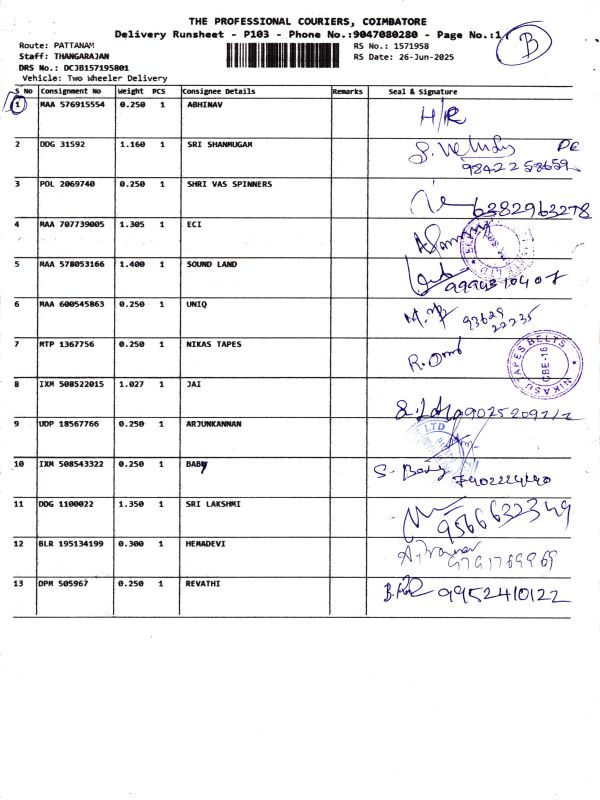 THE PROFESSIONAL COURIERS, COIMBATORE
Delivery Runsheet - P103 - Phone No.:9047080280 - Page No.:1
B
Route: PATTANAM
RS No.: 1571958
Staff: THANGARAJAN
RS Date: 26-Jun-2025
DRS No.: DCJB157195801
Vehicle: Two Wheeler Delivery
S No Consignment No Weight PCS Consignee Details Remarks Seal & Signature
1 MAA 576915554 0.250 1 ABHINAV H/R
2 DDG 31592 1.160 1 SRI SHANMUGAM
98422 58659
3 POL 2069740 0.250 1 SHRI VAS SPINNERS 6382963278
4 MAA 707739005 1.305 1 ECI
5 MAA 578053166 1.400 1 SOUND LAND
6 MAA 600545863 0.250 1 UNIQ 93629
22235
7 MTP 1367756 0.250 1 NIKAS TAPES
NIKASU TAPES BELTS CBE-16
8 IXM 508522015 1.027 1 JAI
9 UDP 18567766 0.250 1 ARJUNKANNAN
LTD
10 IXM 508543322 0.250 1 BABY
11 DDG 1100022 1.350 1 SRI LAKSHMI 9566632349
12 BLR 195134199 0.300 1 HEMADEVI
9791769969
13 DPM 505967 0.250 1 REVATHI 9952410122